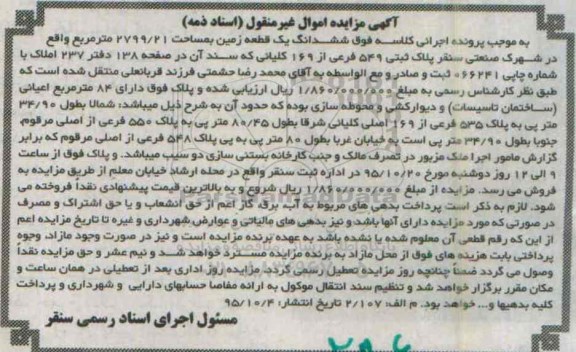 آگهی مزایده اموال غیرمنقول (اسناد ذمه)
به موجب پرونده اجرائی کلاسه فوق ششدانگ یک قطعه زمین بمساحت ۲۷۹۹/۲۱ مترمربع واقع
در شهرک صنعتی سنقر پلاک ثبتی ۵۴۹ فرعی از ۱۶۹ کلیائی که سند آن در صفحه ۱۳۸ دفتر ۲۳۷ املاک با
شماره چاپی ۰۶۶۲۴۱ ثبت و صادر و مع الواسطه به آقای محمد رضا حشمتی فرزند قربانعلی منتقل شده است که
طبق نظر کارشناس رسمی به مبلغ ۱/۸۶۰/۰۰۰/۰۰۰ ریال ارزیابی شده و پلاک فوق دارای ۸۴ مترمربع اعیانی
(ساختمان تاسیسات) و دیوارکشی و محوطه سازی بوده که حدود آن به شرح ذیل میباشد: شمالا بطول ۳۴/۹۰
متر پی به پلاک ۵۳۵ فرعی از ۱۶۹ اصلی کلیائی شرقا بطول ۸۰/۴۵ متر پی به پلاک ۵۵۰ فرعی از اصلی مرقوم.
جنوبا بطول ۳۴/۹۰ متر پی است به خیابان غربا بطول ۸۰ متر پی به پی پلاک ۵۴۸ فرعی از اصلی مرقوم که برابر
گزارش مامور اجرا ملک مزبور در تصرف مالک و جنب کارخانه بستنی سازی دو سیب میباشد. و پلاک فوق از ساعت
۹ الی ۱۲ روز دوشنبه مورخ ۹۵/۱۰/۲۰ در اداره ثبت سنقر واقع در محله ارشاد خیابان معلم از طریق مزایده به
فروش می رسد. مزایده از مبلغ ۱/۸۶۰/۰۰۰/۰۰۰ ریال شروع و به بالاترین قیمت پیشنهادی نقدا فروخته می
شود. لازم به ذکر است پرداخت بدهی های مربوط به آب برق گاز اعم از حق انشعاب و یا حق اشتراک و مصرف
در صورتی که مورد مزایده دارای آنها باشد و نیز بدهی های مالیاتی و عوارض شهرداری و غیره تا تاریخ مزایده اعم
از این که رقم قطعی آن معلوم شده یا نشده باشد به عهده برنده مزایده است و نیز در صورت وجود مازاد، وجوه
پرداختی بابت هزینه های فوق از محل مازاد به برنده مزایده مسترد خواهد شد و نیم عشر و حق مزایده نقدا
وصول می گردد ضمنا چنانچه روز مزایده تعطیل رسمی گردد، مزایده روز اداری بعد از تعطیلی در همان ساعت و
مکان مقرر برگزار خواهد شد و تنظیم سند انتقال موکول به ارائه مفاصا حسابهای دارایی و شهرداری و پرداخت
کلیه بدهیها و... خواهد بود. م الف: ۲/۱۰۷ تاریخ انتشار: ۹۵/۱۰/۴
مسئول اجرای اسناد رسمی سنقر